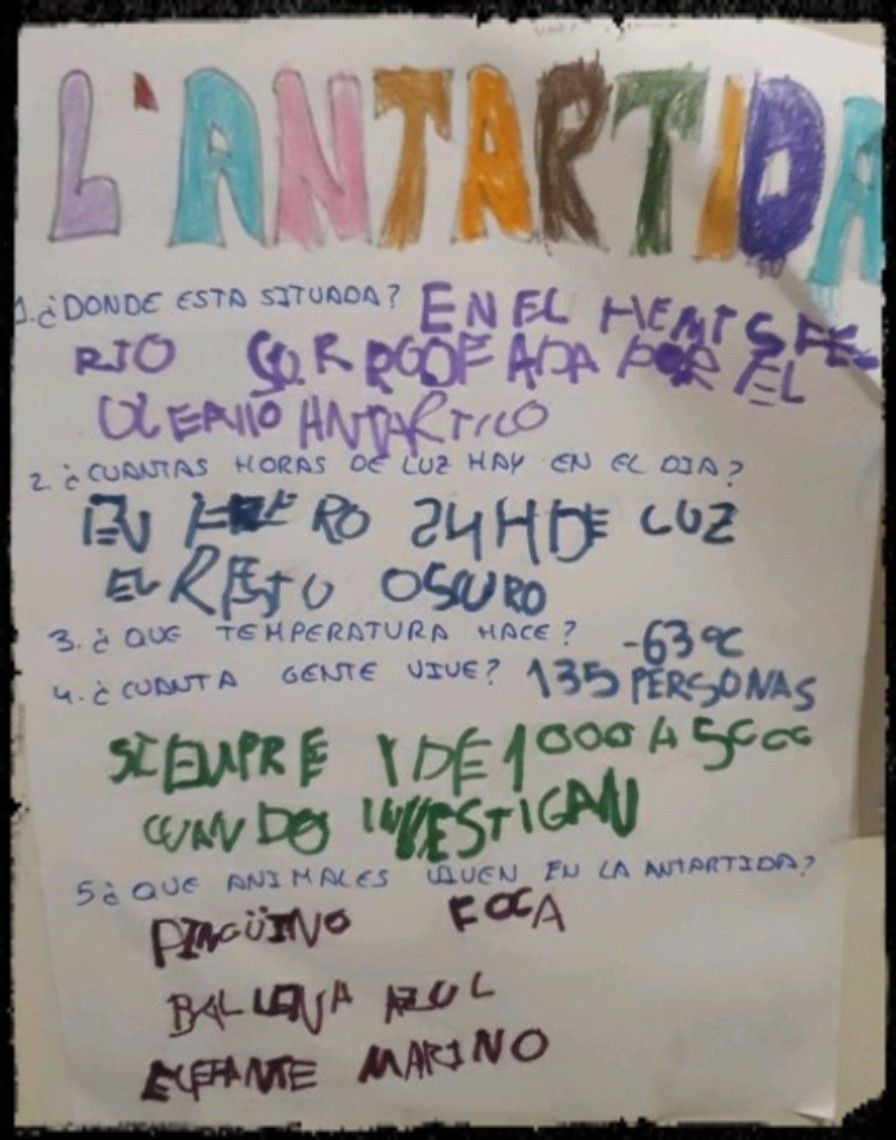 L'ANTARTIDA
1.¿DONDE ESTA SITUADA? EN EL HEMISFE
RIO SUR RODEADA POR EL
OCEANO ANTARTICO
2.¿CUANTAS HORAS DE LUZ HAY EN EL DIA?
EN ENERO 24H DE LUZ
EL RESTO OSCURO
3.¿QUE TEMPERATURA HACE? -63ºC
4.¿CUANTA GENTE VIVE? 135 PERSONAS
SIEMPRE Y DE 1000 A 5000
CUANDO INVESTIGAN
5¿QUE ANIMALES VIVEN EN LA ANTARTIDA?
PINGÜINO FOCA
BALLENA AZUL
ELEFANTE MARINO